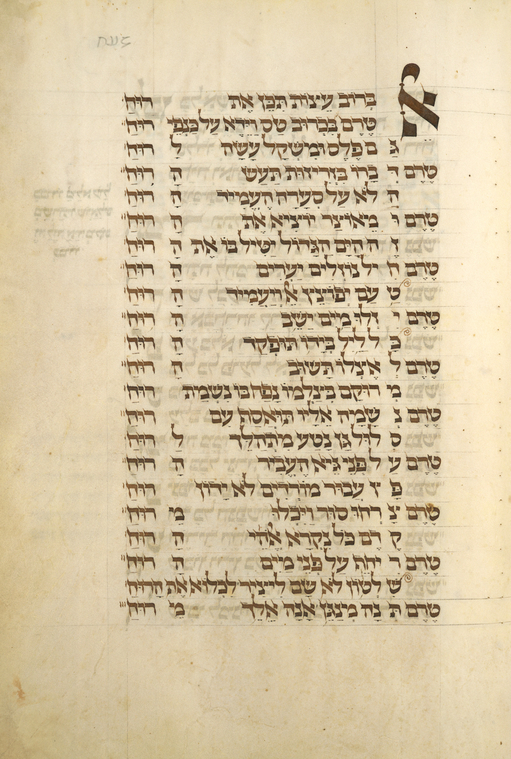 א
בְּרוֹב עֵצוֹת תִּכֵּן אֶת רוּחַ
טֶרֶם בְּבִרְיוֹ
ג ם פֶּלֶס וּמִשְׁקַל עָשָׂה ל רוּחַ
טֶרֶם ד בָּרוֹ בִּזְרִיזוּת תַּעַשׂ ה רוּחַ
ה לֹא עַל סְעָרָה הֶעֱמִיד הָ רוּחַ
טֶרֶם ו מֵאוֹצָר יוֹצִיא אֶת הָ רוּחַ
ז ה הַיָּם הַגָּדוֹל יַטִּיל בּוֹ אֶת הָ רוּחַ
טֶרֶם ח יל נוֹזְלִים יַעֲרִים הָ רוּחַ
ט עַם יְפוֹצֵץ וְיַעֲמִיד הָ רוּחַ
טֶרֶם י זְּלוּ מַיִם יַשֵּׁב הָ רוּחַ
כ לָלֶיל בְּיָדוֹ תּוּפְקַד הָ רוּחַ
טֶרֶם ל אֶצְלוֹ תָּשׁוּב הָ רוּחַ
מ רוּקָם בְּצַלְמוֹ נָפַח בּוֹ נִשְׁמַת רוּחַ
טֶרֶם נ שָׁמָה אֵלָיו תֵּאָסֵף עִם רוּחַ
ס לוּל גַּן נָטַע מִתְהַלֵּךְ ל רוּחַ
טֶרֶם ע ל פְּנֵי גַיְא הֶעֱבִיר הָ רוּחַ
פ ץ עֲבוּר מוֹרְדִים לֹא יָדוֹן רוּחַ
טֶרֶם צ רְחוּ סוּר וַיִּבָּלוּ מ רוּחַ
ק דֶם כָּל נִקְרָא אֲחִי הָ רוּחַ
טֶרֶם ר יחֵף עַל פְּנֵי מַיִם הָ רוּחַ
שׁ לְטוֹן לֹא שָׂם לִיצִיר לִכְלוֹא אֶת הָרוּחַ
טֶרֶם ת נָּה מִמֶּנּוּ אָנָה אֵלֵךְ מֵ רוּחַ